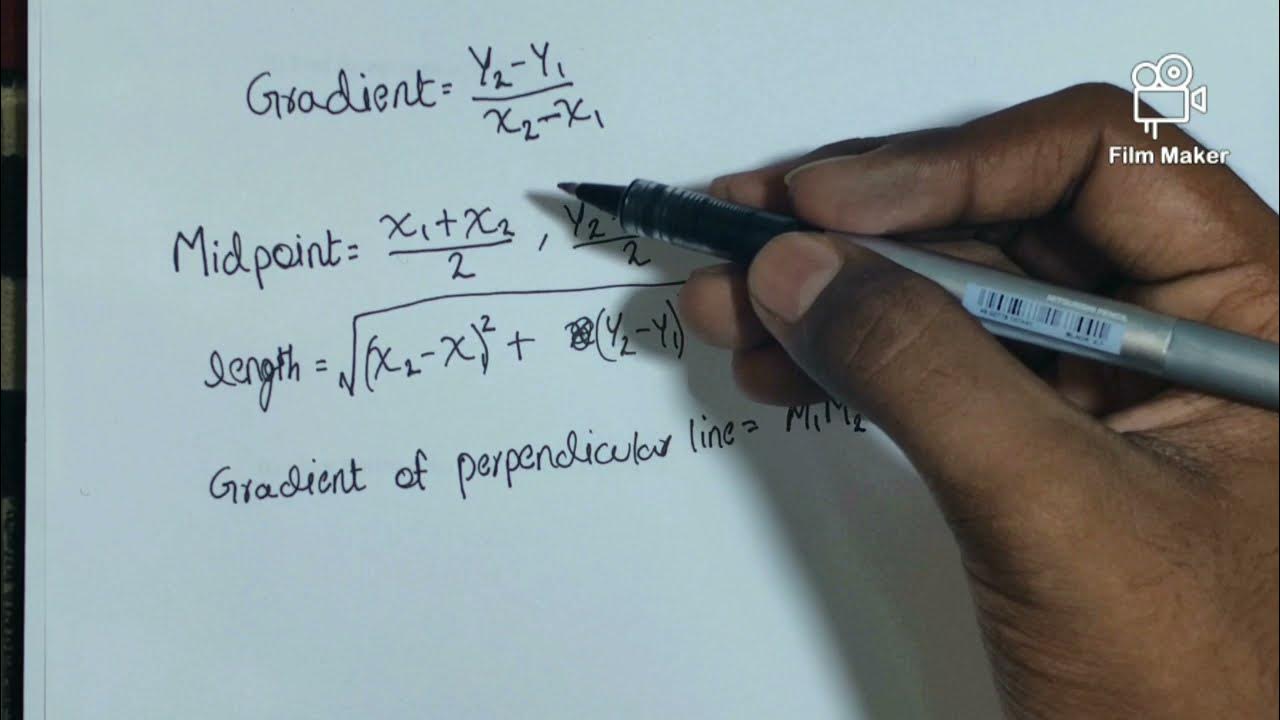 Film Maker
Gradient = Y₂-Y₁ / x₂-x₁
Midpoint = x₁+x₂ / 2 , Y₂ / 2
length = √(x₂-x₁)² + (Y₂-Y₁)
Gradient of perpendicular line = M₁M₂